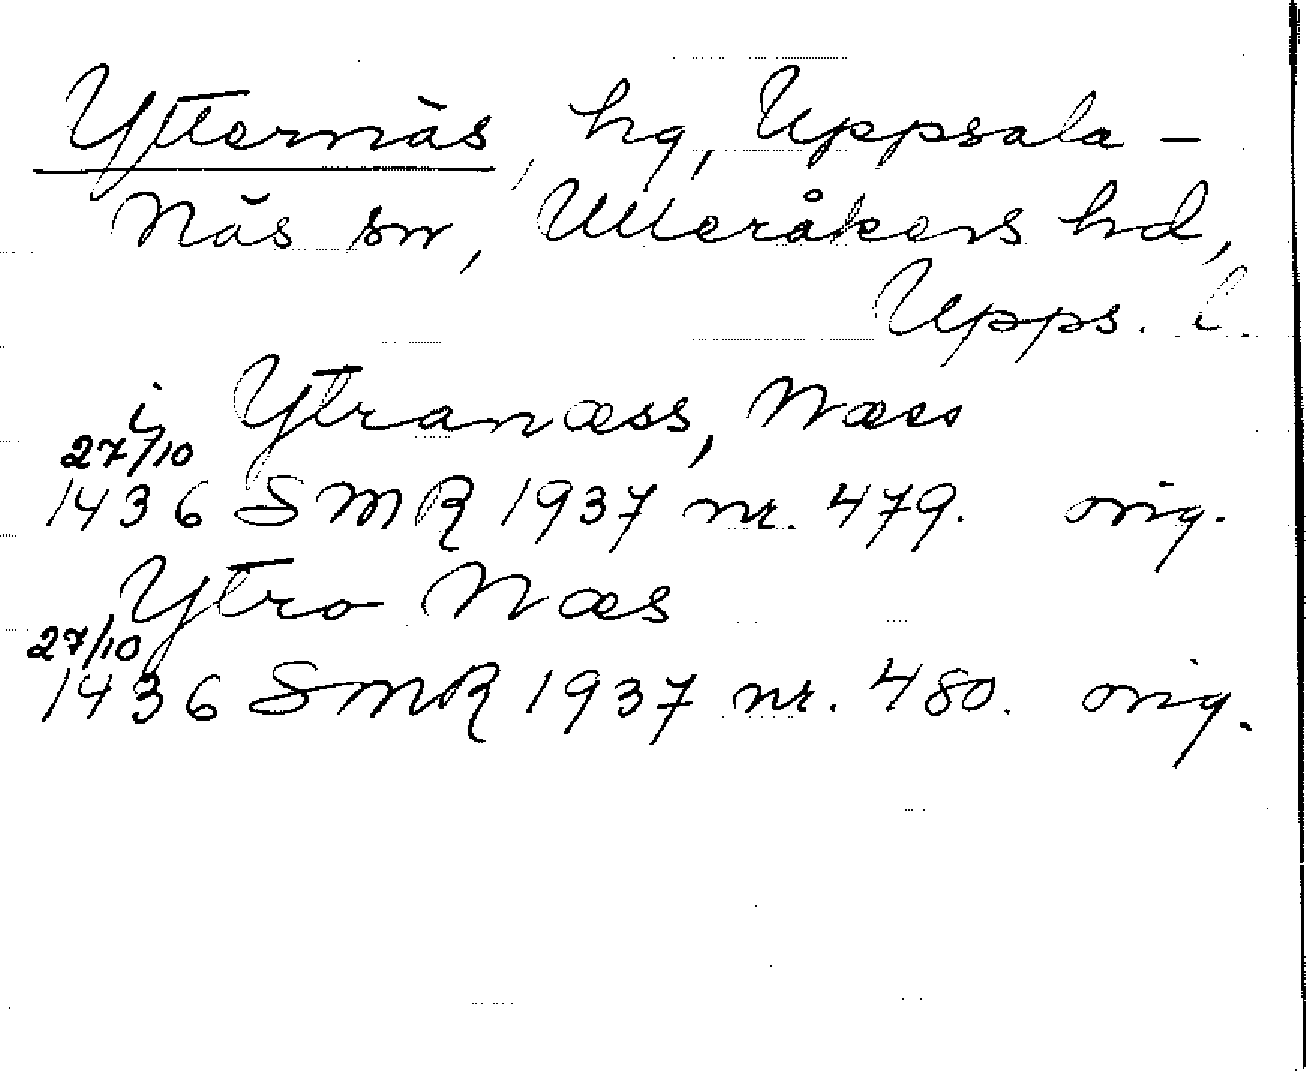 Ytternäs, hg, Uppsala-
Näs sn, Ulleråkers hd,
Upps. l.
i Ytranæss, Næss
27/10
1436 SMR 1937 nr. 479. orig.
Ytro Næs
27/10
1436 SMR 1937 nr. 480. orig.